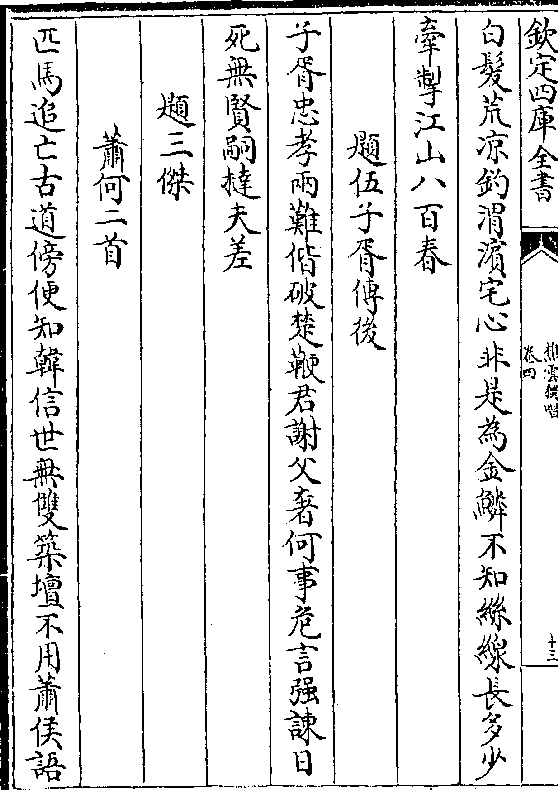 欽定四庫全書
樵雲獨唱
卷四
十三
白髮荒凉釣渭濱宅心非是為金鱗不知絲線長多少
牽掣江山八百春
題伍子胥傳後
子胥忠孝兩難偕破楚鞭君謝父奢何事危言强諫日
死無賢嗣撻夫差
題三傑
蕭何二首
匹馬追亡古道傍便知韓信世無雙築壇不用蕭侯語